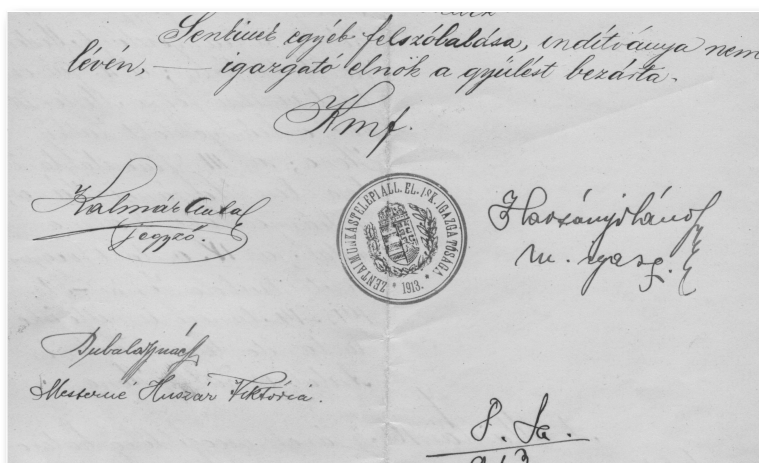 Senkinek egyéb felszólalása, indítványa nem
lévén, — igazgató elnök a gyülést bezárta.
Kmf.
Kalmár Antal
jegyző.
ZENTAI MUNKÁSTELEPI ÁLL. EL. ISK. IGAZGATÓSÁGA
* 1913. *
János
m. igazg.
Dubala Ignác
Mesterné Huszár Viktória.